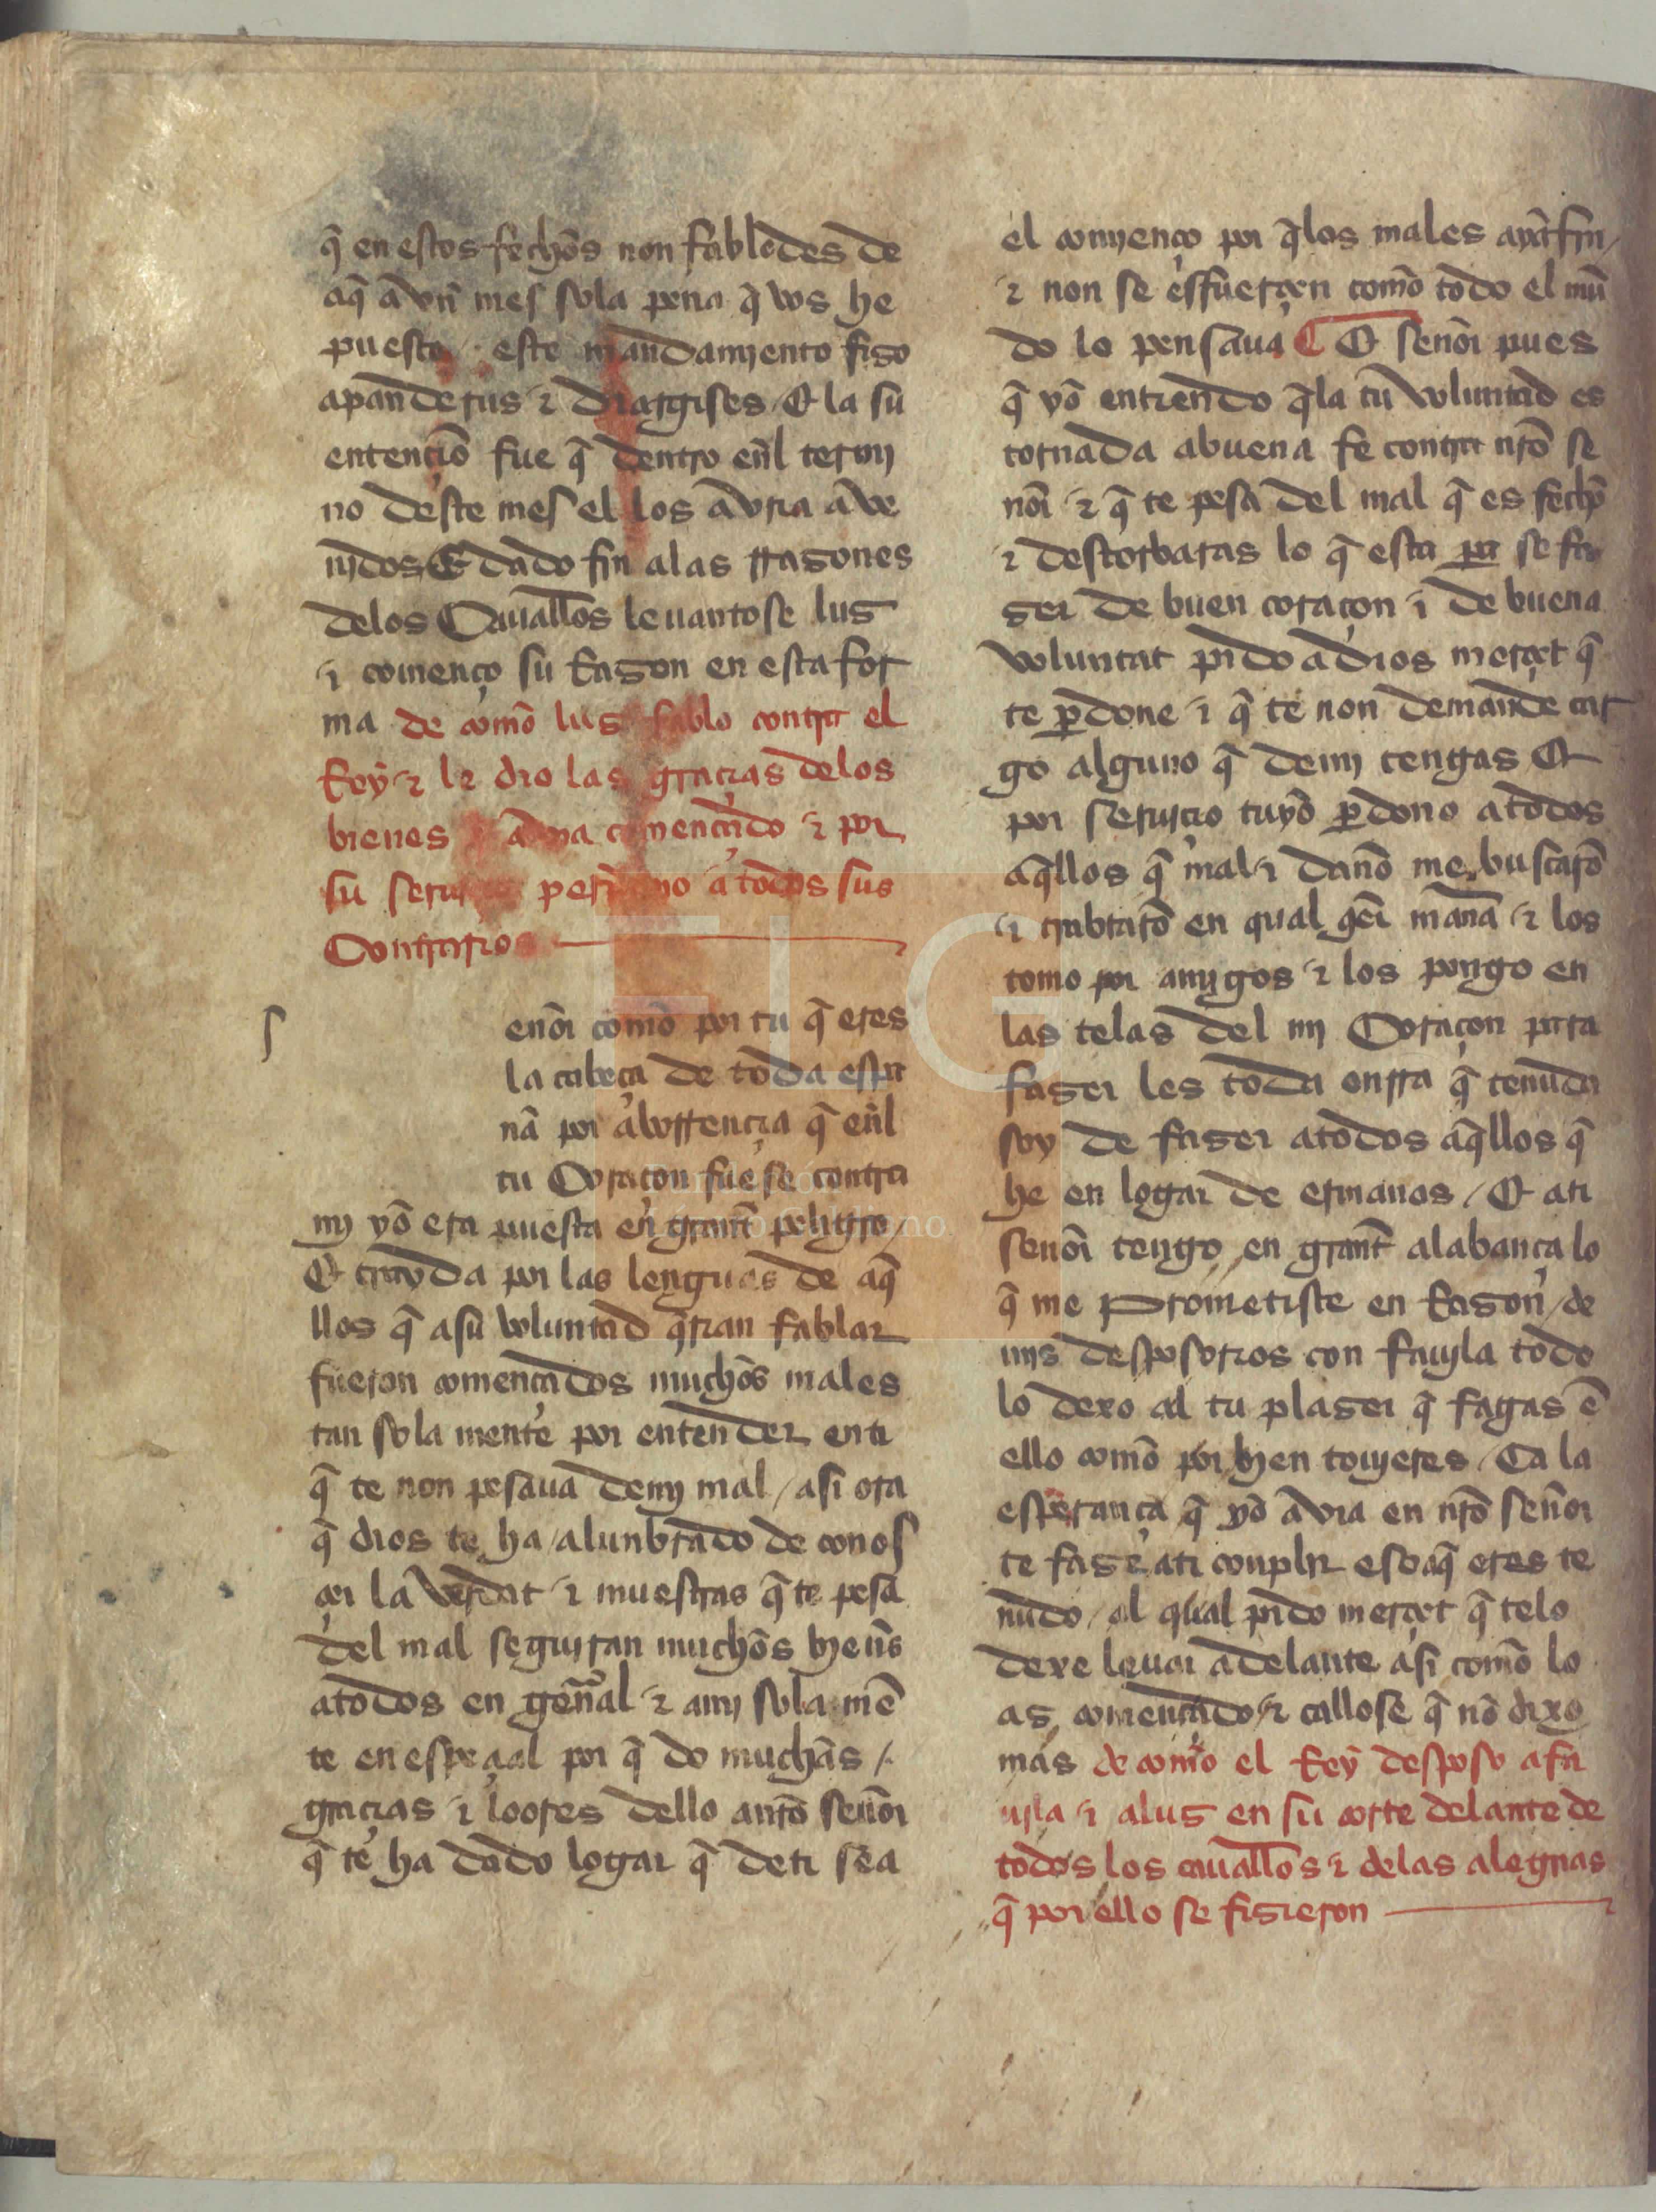 q̄ en estos fechōs non fabledes de
aq̄ a vn̄ mes sola pena q̄ vos he
puesto / este mandamiento fizo
apanderus ⁊ dramgises / Et la su
entençiō fue q̄ dentro en̄l termi
no deste mes el los avria ave
nidos E dado fin alas rrazones
delos Cauall̄os leuantose luz
⁊ començo su Razon en esta for
ma de comō luz fablo contra el
Rey ⁊ le dio las graçias delos
bienes comencado ⁊ por
su a todos sus
Contrarios
s
enōr comō por tu q̄ eres
la cabeça de toda espa
nā por aborrençia q̄ en̄l
tu Coraçon fuese contra
mi yō era puesta en grant̄ peligro /
Et trayda por las lenguas de aq̄
llos q̄ asu voluntad q̄rian fablar
fueron començados muchōs males
tan sola mente por entender enti
q̄ te non pesaua demj mal / asi ora
q̄ dios te ha / alunbrado de conos
çer la verdat ⁊ muestras q̄ te pesa
del mal seguiran muchōs bien̄s
atodos en gen̄al ⁊ amj sola mē
te en espeçial por q̄ do muchās /
graçias ⁊ loores dello anrō senōr
q̄ te ha dado logar q̄ deti sea
el comienço por q̄los males ayā fin /
⁊ non se esfuerçen comō todo el mū
do lo pensaua ¶ O senōr pues
q̄ yō entiendo q̄la tu voluntad es
tornada abuena fe contra nrō se
nōr ⁊ q̄ te pesa del mal q̄ es fechō
⁊ destorbaras lo q̄ esta pa se fa
zer de buen coraçon ⁊ de buena
voluntat pido a dios merçet q̄
te p̱done ⁊ q̄ te non demande car
go alguno q̄ demj tengas Et
por seruiçio tuyō p̱dono atodos
aq̄llos q̄ mal ⁊ danō me buscarō
⁊ trabtarō en qual qēr manā ⁊ los
tomo por amigos ⁊ los pongo en
las telas del mj Coraçon para
fazer les toda onrra q̄ tenuda
soy de fazer atodos aq̄llos q̄
he en logar de ermanos / Et ati
senōr tengo en grant̄ alabança lo
q̄ me Prometiste en Razon / de
mjs desposorios con fauila todo
lo dexo al tu plazer q̄ fagas ē
ello comō por bien touieres / Ca la
esperança q̄ yō avia en nrō señor
te faze ati conplir eso aq̄ eres te
nudo / al qual pido merçet q̄ telo
dexe leuar adelante asi comō lo
as començado ⁊ callose q̄ nō dixo
mas de comō el Rey desposo a fa
uila ⁊ aluz en su corte delante de
todos los cauall̄os ⁊ delas alegrias
q̄ por ello se fizieron